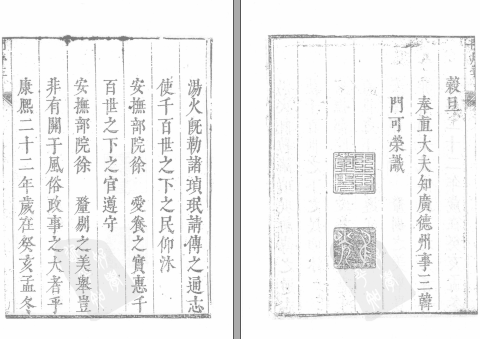 湯火既勒諸瑱珉請傳之通志
使千百世之下之民仰沐
安撫部院徐 愛養之實惠千
百世之下之官遵守
安撫部院徐 釐剔之美舉豈
非有關于風俗政事之大者乎
康熙二十二年歲在癸亥孟冬
穀旦
奉直大夫知廣德州事三韓
門可榮識